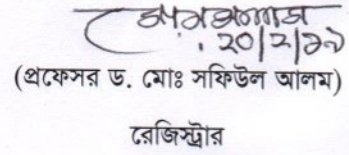 ২০/২/১৯
(প্রফেসর ড. মোঃ সফিউল আলম)
রেজিস্ট্রার